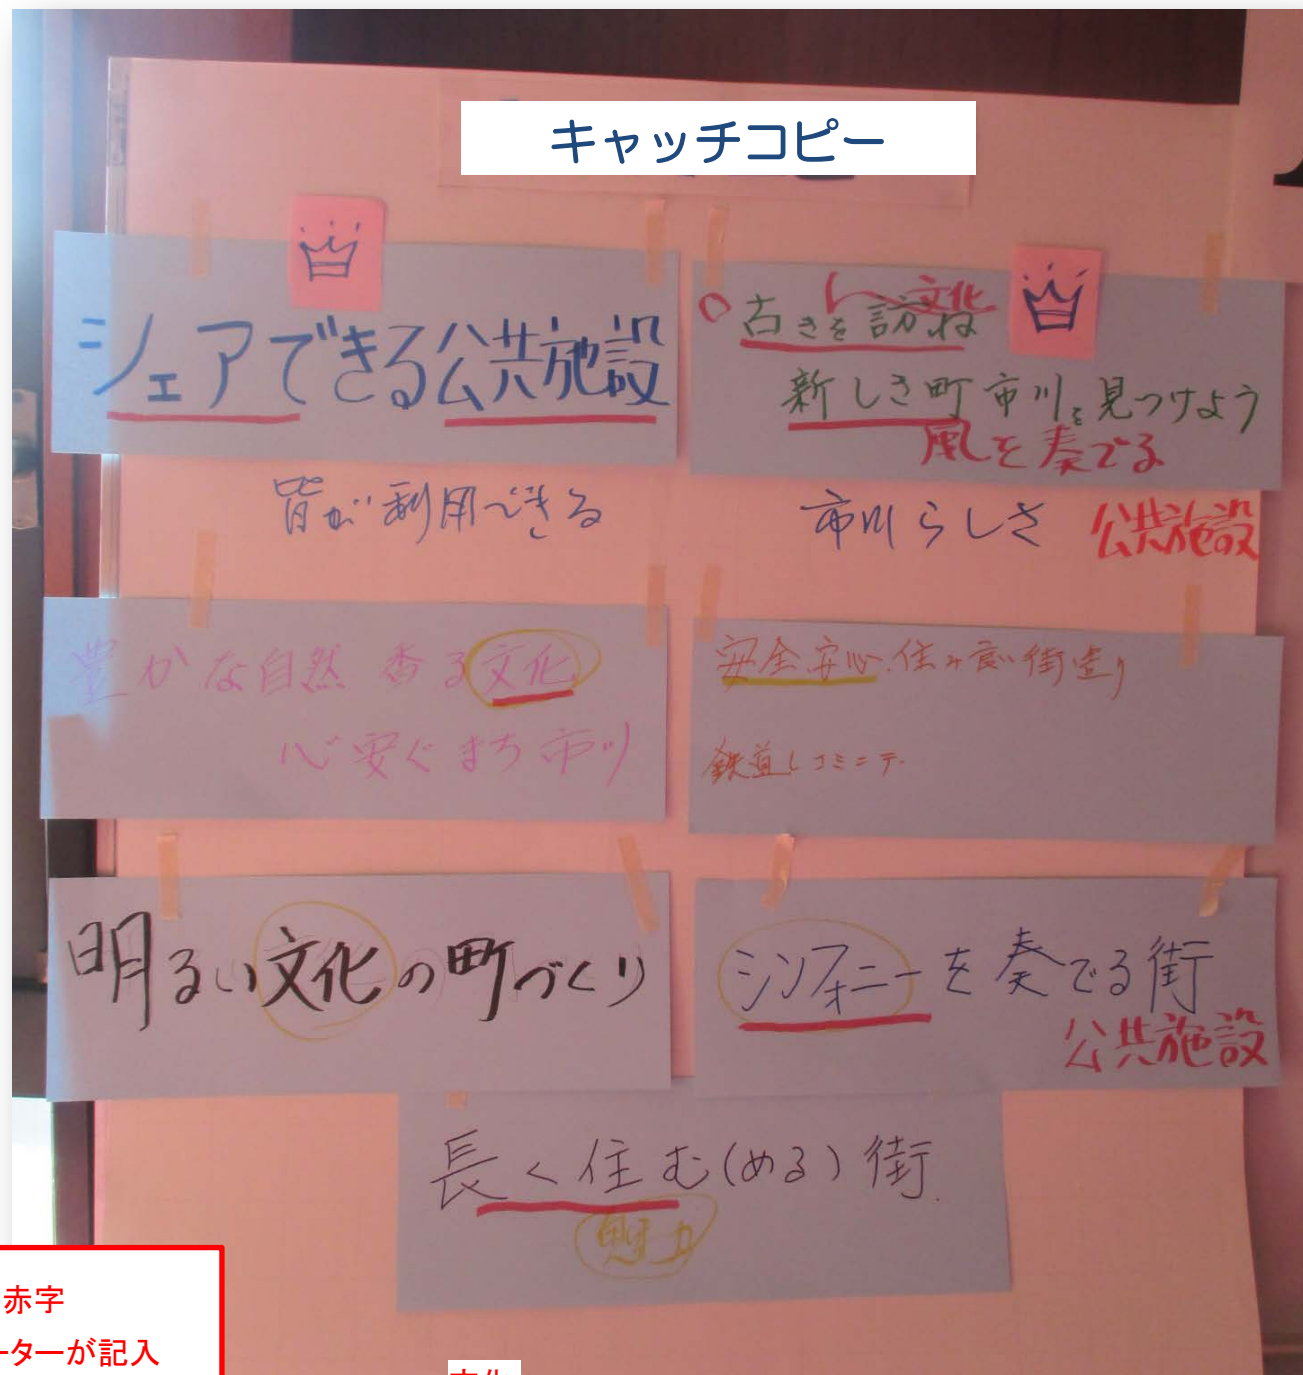 キャッチコピー
シェアできる公共施設
皆が利用できる
文化
古きを訪ね
新しき町市川を見つけよう
風を奏でる
市川らしさ 公共施設
豊かな自然 香る文化
心安ぐまち市川
安全安心.住み良い街造り
鉄道
明るい文化の町づくり
シンフォニーを奏でる街
公共施設
長く住む(める)街.
魅力
赤字
ーターが記入